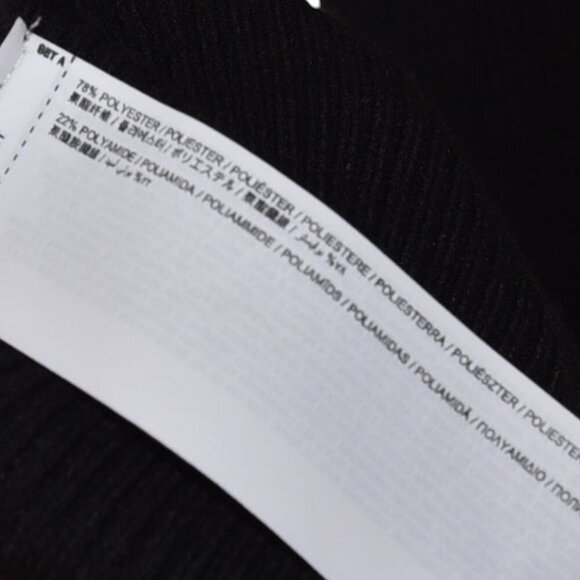 SET A
78% POLYESTER / POLIESTER / POLIÉSTER / POLIESTERE / POLIESTERRA / POLIÉSZTER / POLIESTER
聚酯纤维 / 폴리에스터 / ポリエステル / 聚酯纖維 / بوليستر %٧٨
22% POLYAMIDE / POLIAMIDA / POLIAMMIDE / POLIAMÍDS / POLIAMIDAS / POLIAMIDĂ / ΠΟΛΥΑΜΙΔΙΟ /